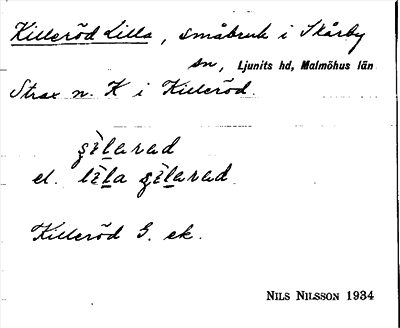 Killeröd Lilla, småbruk i Skårby
sn, Ljunits hd, Malmöhus län
Strax n. K i Killeröd.
el. lìla
Killeröd G. ek.
NILS NILSSON 1934